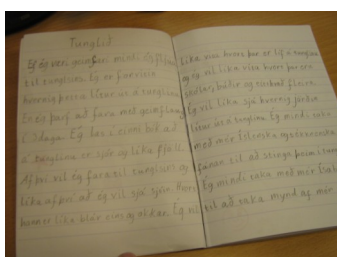 Tunglið
Ef ég væri geimfari mindi ég fljúga
til tunglsins. Ég er forvitin
hvernig þeira lítur út á tunglinu
En það þarf að fara mot geimflaug
í daga. Ég las i einni bók að
á tunglinu er sjór og líka fjöll.
Af því vil ég fara til tunglsins og
líka af því að ég vil sjá sjóin. Hvort
hann er líka blár eins og okkar. Ég vil
líka vita hvort þar er líf á tunglinu
og ég vil líka vita hvort þar eru
skólar, búðir og
Ég vil líka sjá hvernig jörðin
lítur út á tunglinu. Ég mindi taka
með mér íslenska
fánan til að stinga þeim í
Ég mindi taka með mér
til að taka mynd af mér.